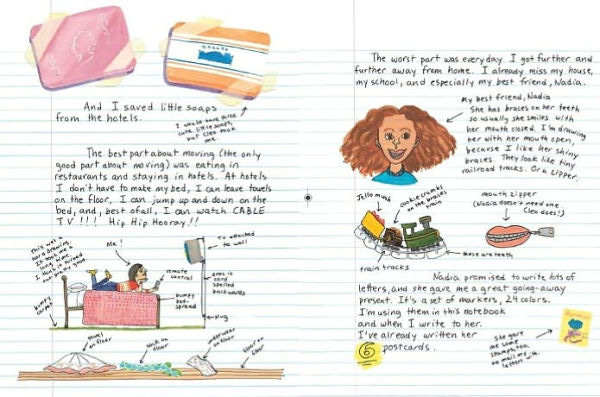 And I saved little soaps
from the hotels.
I would have three
cute little soaps,
but Cleo took
one.
The best part about moving (the only
good part about moving) was eating in
restaurants and staying in hotels. At hotels
I don't have to make my bed, I can leave towels
on the floor, I can jump up and down on the
bed, and, best of all, I can watch CABLE
TV!!!! Hip Hip Hooray!!
This was a
hard drawing.
It took me a
long time.
I think it turned
out pretty good.
Me!
TV attached
to wall
remote
control
is
cord
spelled
backwards
bumpy
bed-
spread
bumpy
plug
towel
on floor
sock on
floor
underwear
on floor
floor on
The worst part was everyday I got further and
further away from home. I already miss my house,
my school, and especially my best friend, Nadia.
My best friend, Nadia
She has braces on her teeth
so usually she smiles with
her mouth closed. I'm drawing
her with her mouth open,
because I like her shiny
braces. They look like tiny
railroad tracks. Or a zipper.
Jello mush
cookie crumbs
on the braces
train
mouth zipper
(Nadia doesn't need one.
Cleo does!)
train tracks
these are teeth
Nadia promised to write lots of
letters, and she gave me a great going-away
present. It's a set of markers, 24 colors.
I'm using them in this notebook
and when I write to her.
I've already written her
5 postcards.
She gave
me some
stamps, too,
to mail my
letters